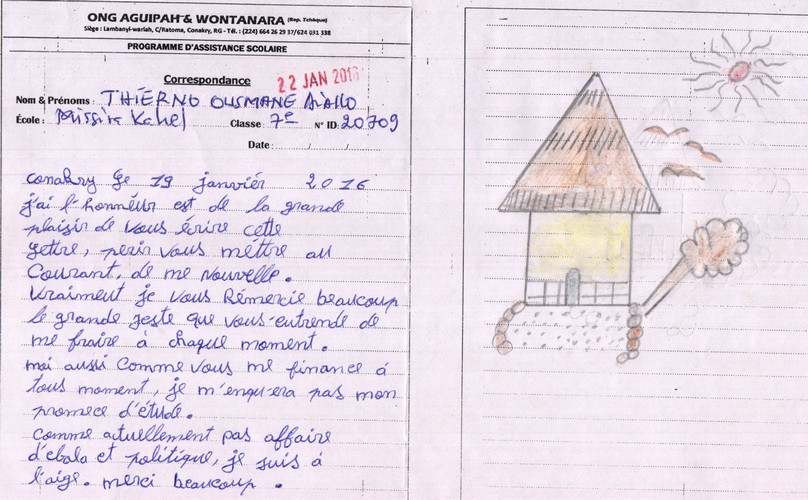 ONG AGUIPAH & WONTANARA (Rep. Tchèque)
Siège : Lambanyi-wariah, C/Ratoma, Conakry, RG - Tél. : (224) 664 26 29 37/624 031 338
PROGRAMME D'ASSISTANCE SCOLAIRE
Correspondance
22 JAN 2016
Nom & Prénoms : THIERNO OUSMANE DIALLO
École : Missira Kahel Classe : 7e N° ID: 20709
Date : / /
Conakry le 19 janviér 2016
j'ai l'honnéur est de la grande
plaisir de vous écrire cette
lettre, pour vous méttre au
Courant, de me Nouvelle.
Vraiment je vous Rémercie beaucoup
le grande jeste que vous entrende de
me fraire à chaque moment.
moi aussi comme vous me finance á
tous moment, je m'enqu-era pas mon
promece d'étude.
comme actuellement pas affaire
d'ebola et politique, je suis á
l'aige. merci beaucoup.